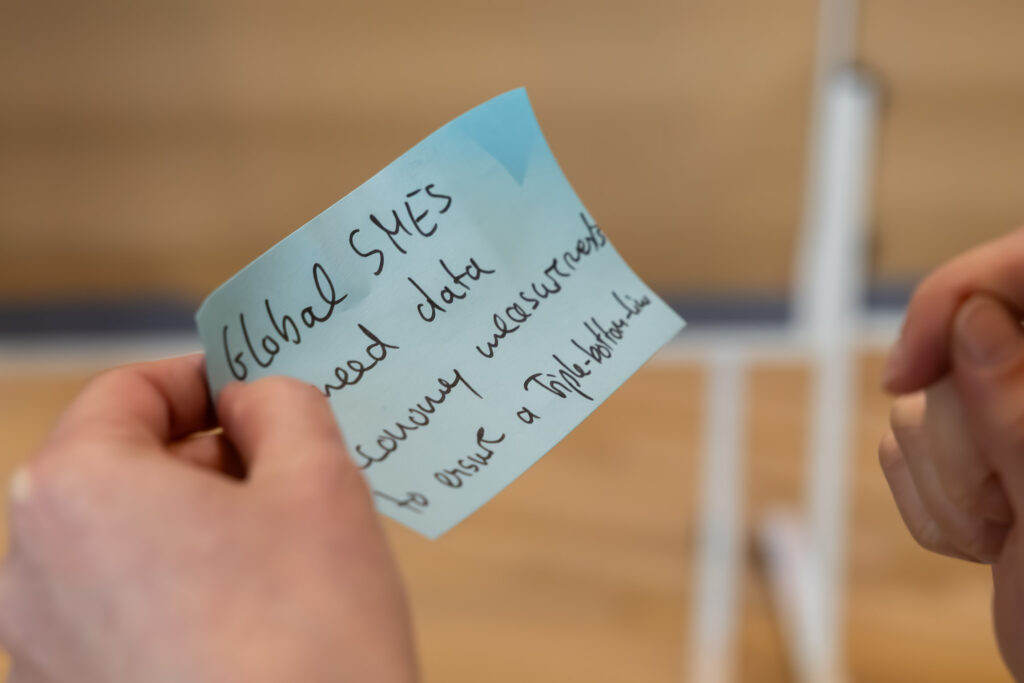 Global SMES
need data
economy measurements
to ensure a Triple-bottom-line